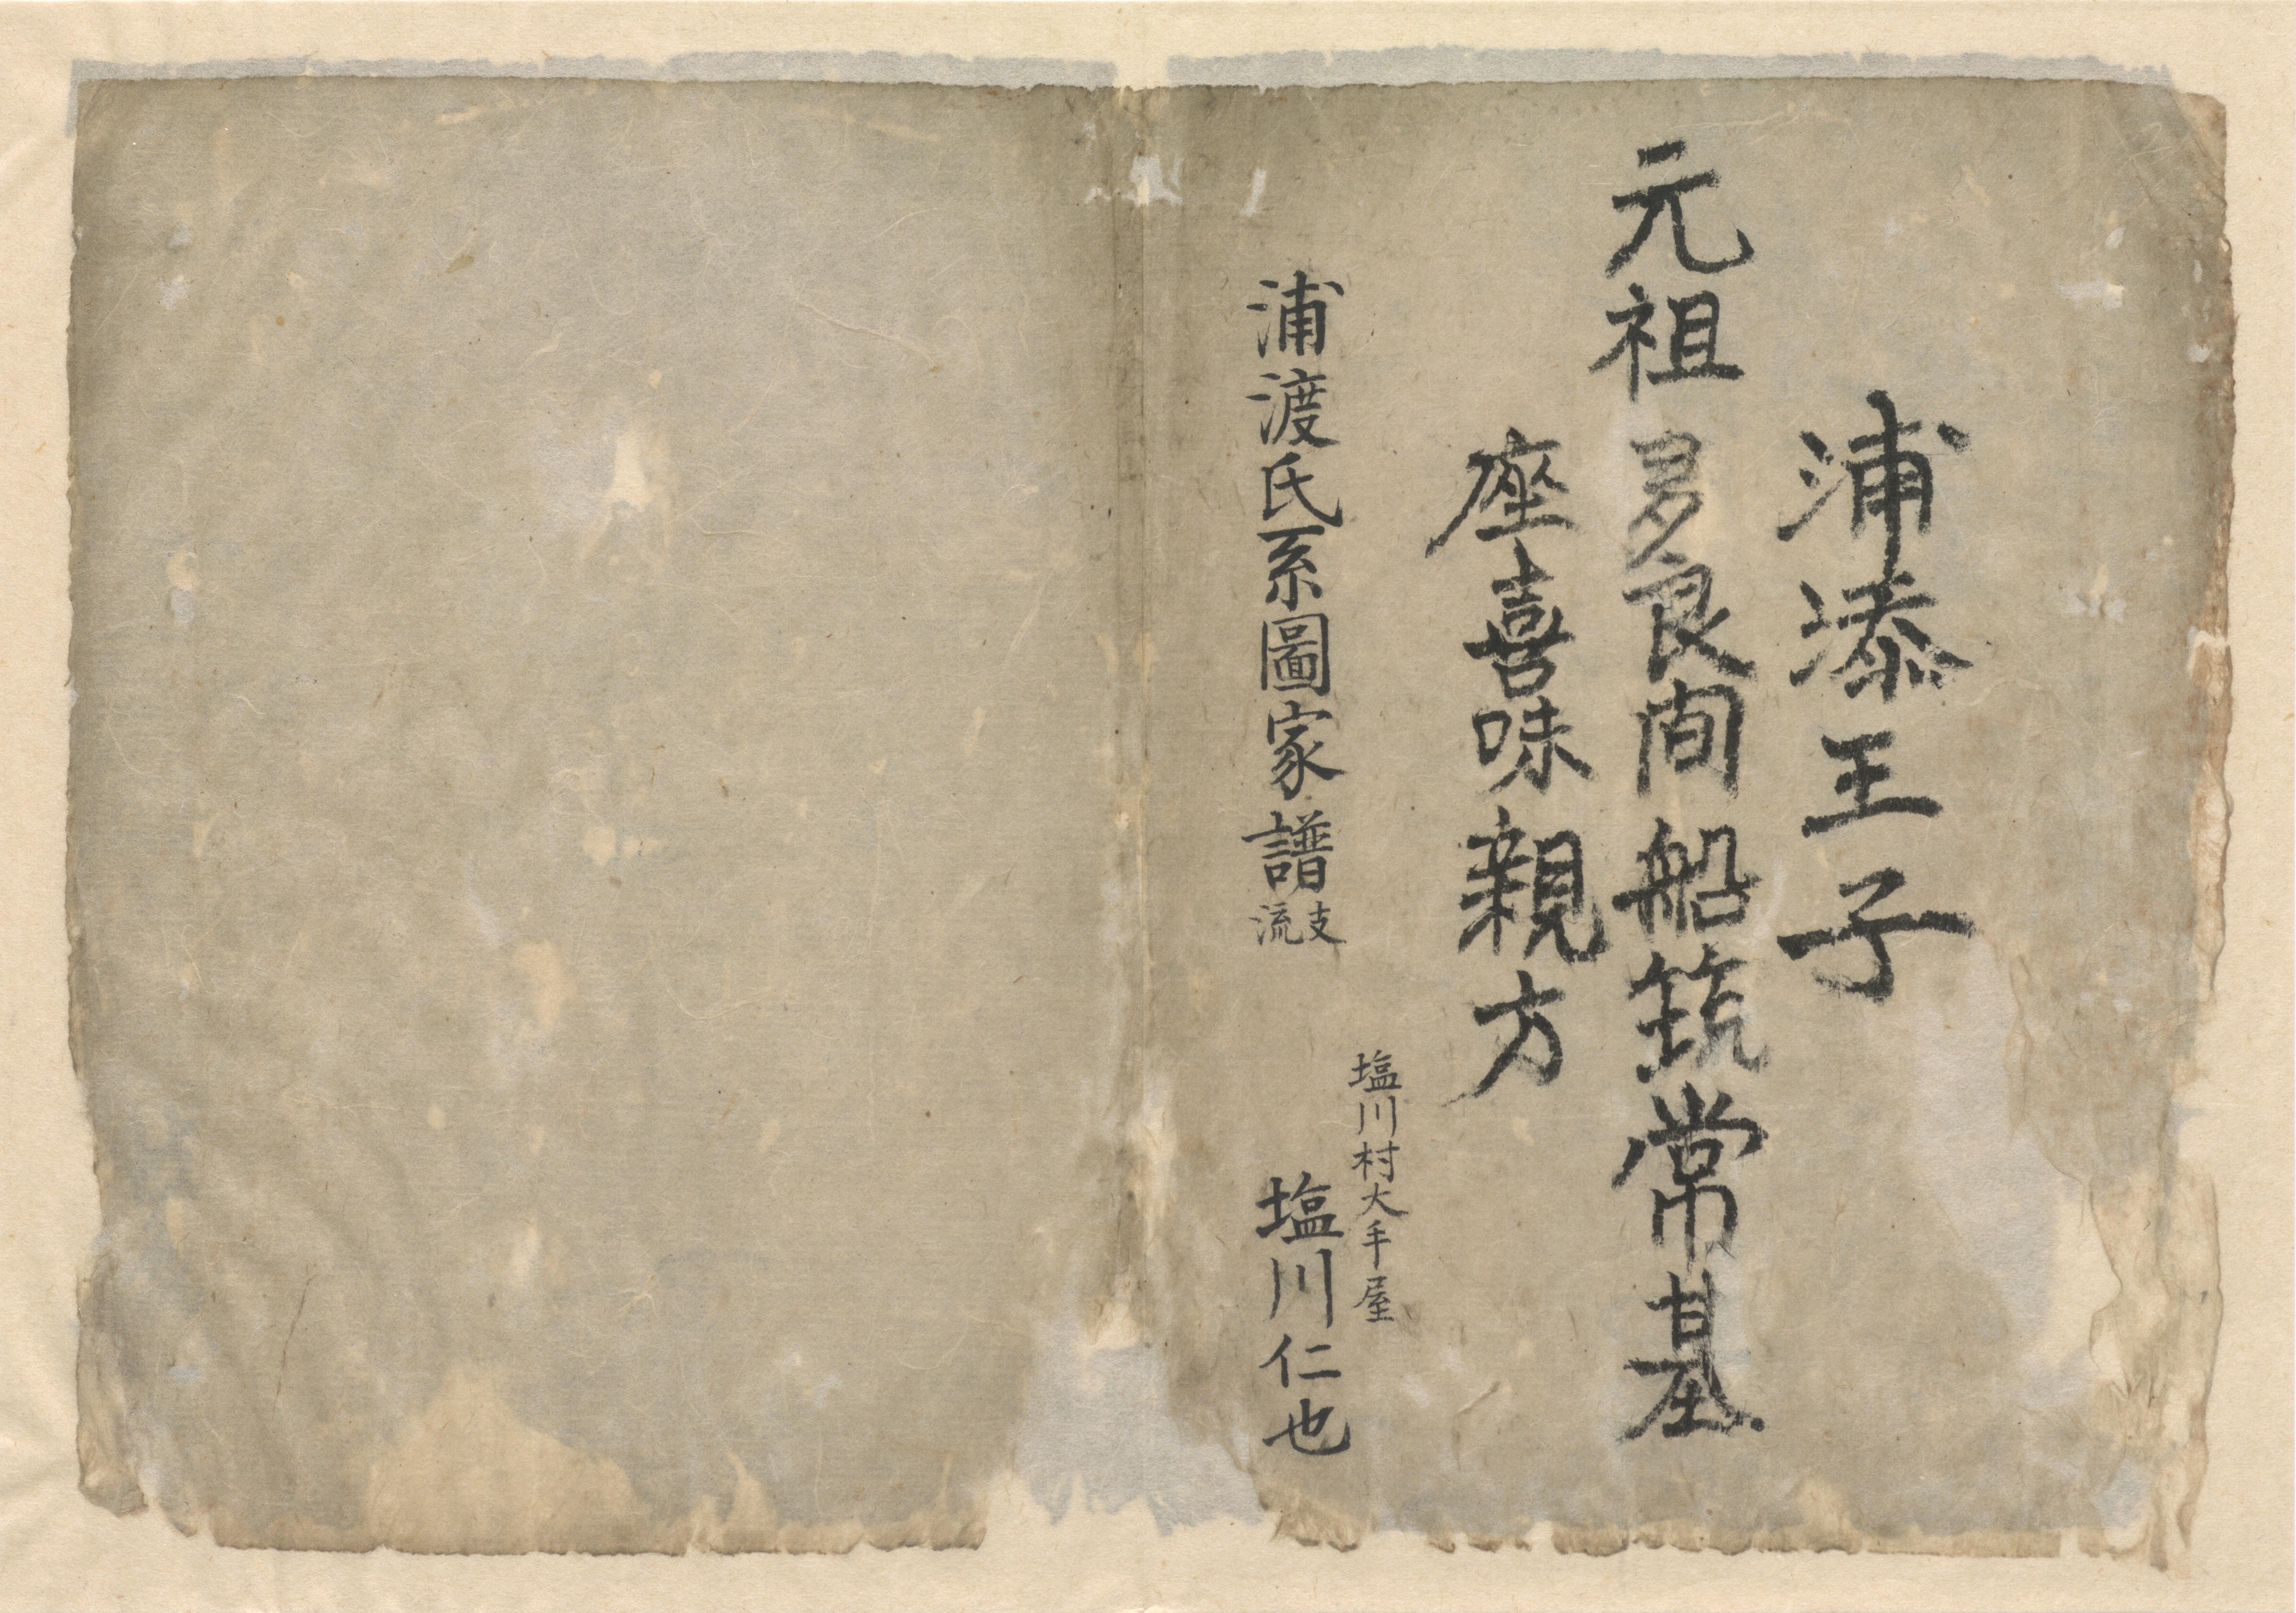 浦添王子
元祖多良间船筑常基
座喜味親方
塩川村大手屋
浦渡氏系圖家譜支流 塩川仁也